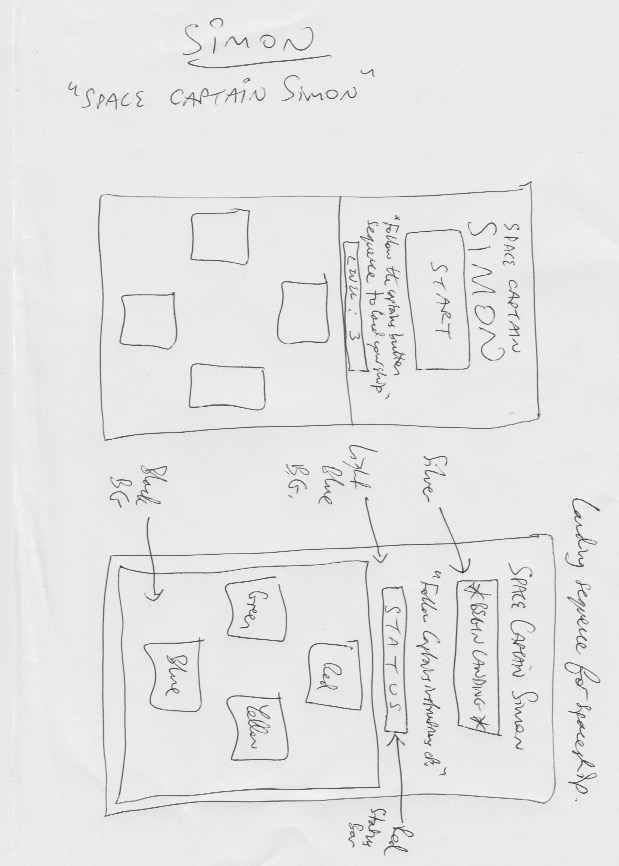 SIMON
"SPACE CAPTAIN SIMON"
SPACE CAPTAIN
SIMON
START
"Follow the captains button
sequence to land your ship"
LEVEL: 3
Landing sequence for spaceship.
SPACE CAPTAIN SIMON
*BEGIN LANDING*
"Follow Captains instructions
STATUS
Red
Green
Yellow
Blue
Silver
Light
Blue
B.G.
Black
BG
Red
Status
bar